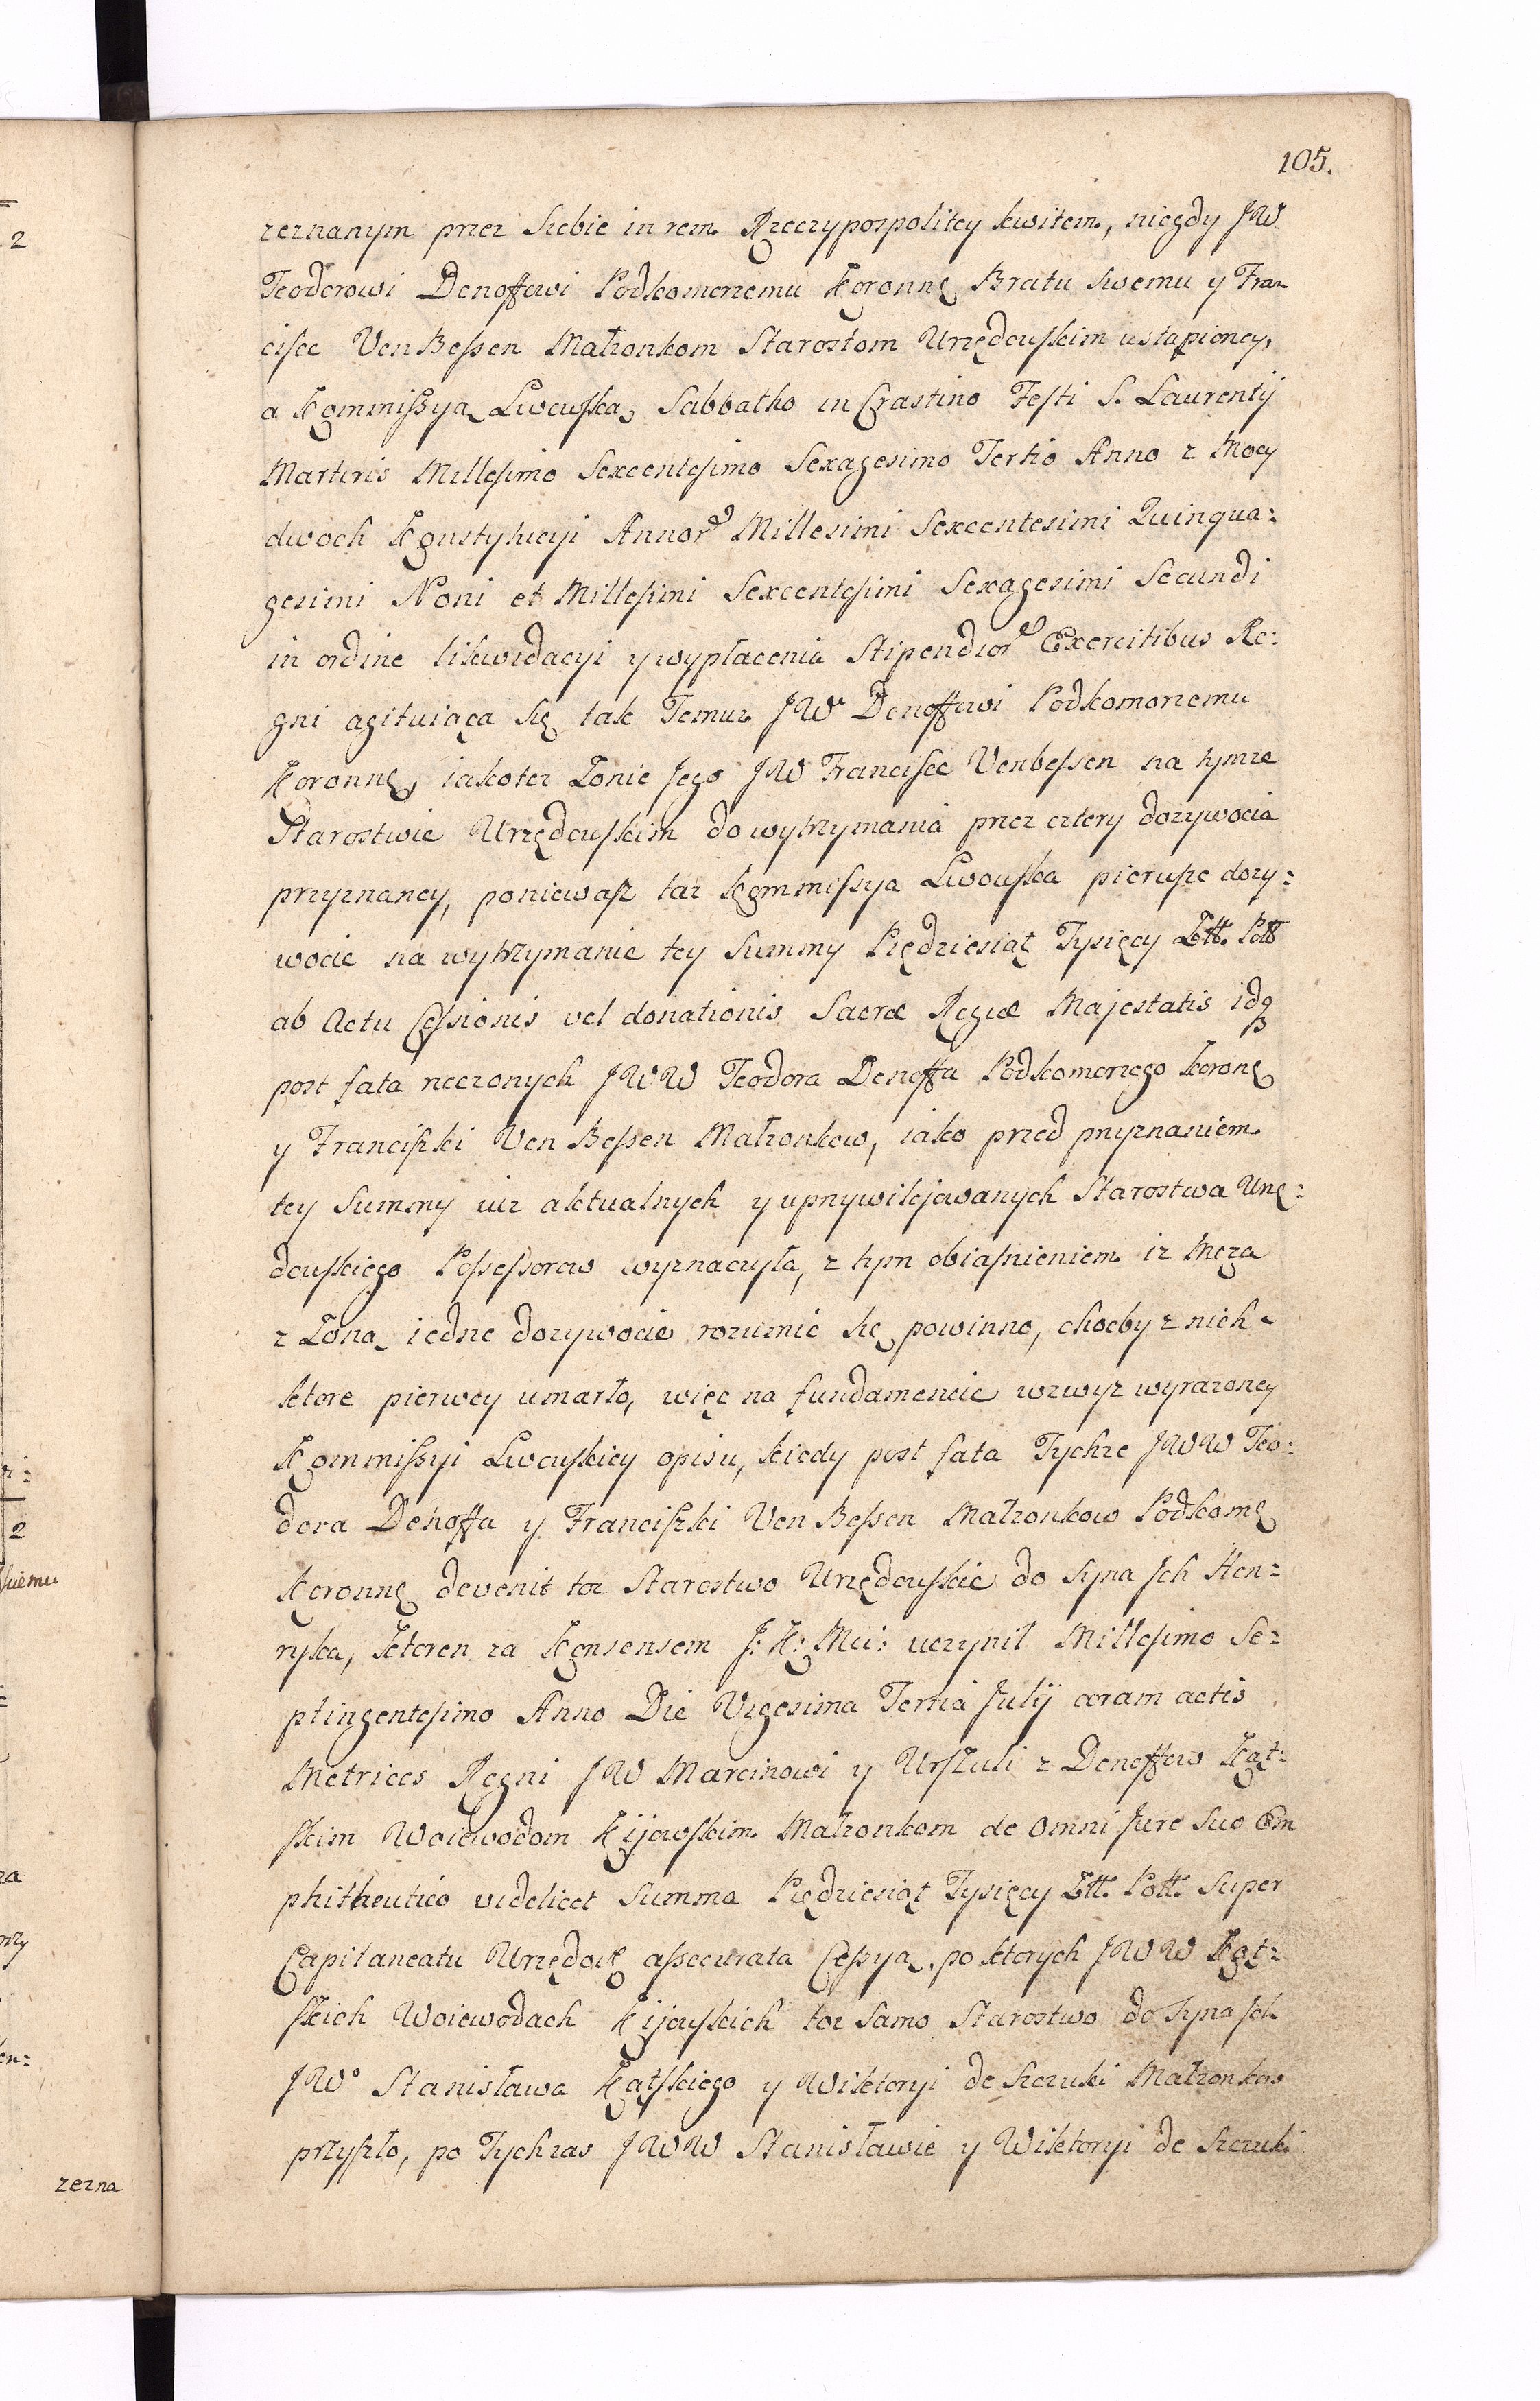 105.
zeznanym przez Siebie in rem Rzeczypospolitey kwitem, niegdy JW
Teodorowi Denoffowi Podkomorzemu Koronnę Bratu swemu y Fran
cisce Von Bessen Małżonkom Starostom Urzędowskim ustąpioney,
a Kommissyą Lwowską, Sabbatho in Crastino Festi S. Laurentij
Martiris Millesimo Sexcentesimo Sexagesimo Tertio Anno z Mocy
dwoch Konstytucyi Annor Millesimi Sexcentesimi Quinqua:
gesimi Noni et Millesimi Sexcentesimi Sexagesimi Secundi
in ordine likwidacyi y wypłacenia Stipendior Exercitibus Re:
gni agituiąca się tak Temuz JW Denoffowi Podkomorzemu
Koronnę, iakotez Zonie Jego JW Francisce Venbessen na tymze
Starostwie Urzędowskim do wytrzymania przez cztery dozywocia
przyznaney, poniewasz taz Kommissya Lwowska pierwsze dozy:
wocie na wytrzymanie tey Summy Piędziesiąt Tysięcy Złł. Poll
ab Actu Cessionis vel donationis Sacræ Regiæ Majestatis idq
post fata rzeczonych JWW Teodora Denoffa Podkomorzego Koronę
y Franciszki Von Bessen Małzonkow, iako przed przyznaniem
tey Summy iuz aktualnych y uprzywilejowanych Starostwa Urzę:
dowskiego Possessorow wyznaczyła, z tym obiaśnieniem iz Męza
z Zoną iedne dozywocie rozumić się powinno, choćby z nich
ktore pierwey umarło, więc na fundamencie wzwyz wyrazoney
Kommissyi Lwowskiey opisu, kiedy post fata Tychze JWW Teo:
dora Denoffa y Franciszki Von Bessen Małzonkow Podkomę
Koronnę devenit toz Starostwo Urzędowskie do Syna Ich Hen:
ryka, ktoren za Konsensem J: K: Mci: uczynił Millesimo Se:
ptingentesimo Anno Die Vigesima Tertia Julij coram actis
Metrices Regni JW Marcinowi y Urszuli z Denoffow Kąt:
skim Woiewodom Kijowskim Małzonkom de Omni Jure Suo Em
phitheutico videlicet Summa Piędziesiąt Tysięcy Złł. Poll. Super
Capitaneatu Urzędowę assecurata Cessyą, po ktorych JWW Kąt:
skich Woiewodach Kijowskich toz samo Starostwo do Syna Ich
JWo Stanisława Kątskiego y Wiktoryi de Szczuki Małzonkow
przyszło, po Tychzas JWW Stanisławie y Wiktoryi de Szczuki
2
2
skiemu
zezna